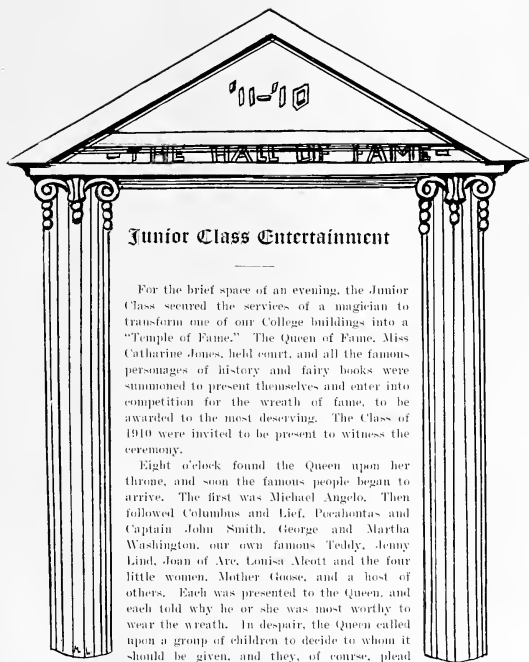 '11-'10
-THE HALL OF FAME-
Junior Class Entertainment
For the brief space of an evening, the Junior
Class secured the services of a magician to
transform one of our College buildings into a
"Temple of Fame." The Queen of Fame, Miss
Catharine Jones, held court, and all the famous
personages of history and fairy books were
summoned to present themselves and enter into
competition for the wreath of fame, to be
awarded to the most deserving. The Class of
1910 were invited to be present to witness the
ceremony.
Eight o'clock found the Queen upon her
throne, and soon the famous people began to
arrive. The first was Michael Angelo. Then
followed Columbus and Lief, Pocahontas and
Captain John Smith, George and Martha
Washington, our own famous Teddy, Jenny
Lind, Joan of Arc, Louisa Alcott and the four
little women, Mother Goose, and a host of
others. Each was presented to the Queen, and
each told why he or she was most worthy to
wear the wreath. In despair, the Queen called
upon a group of children to decide to whom it
should be given, and they, of course, plead